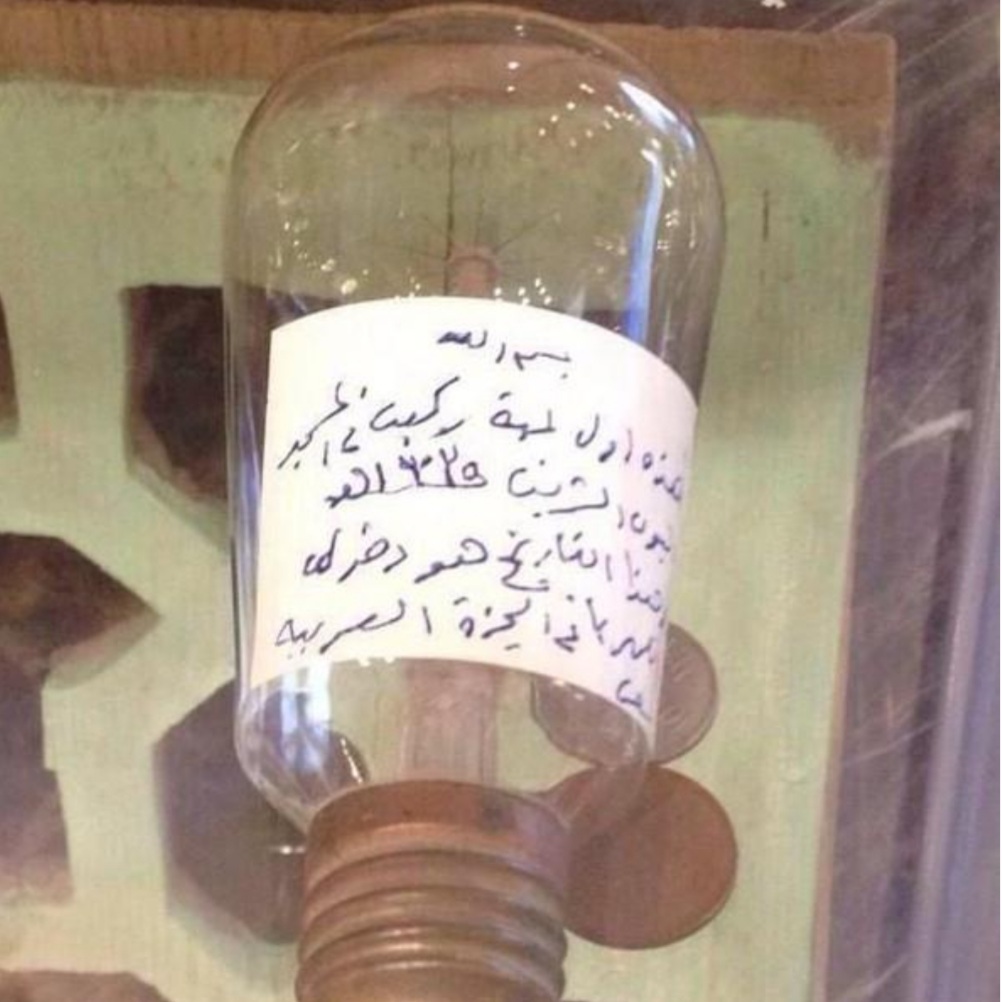 بسم الله
هذه اول لمبة ركبت في المسجد
النبوي الشريف ١٣٢٥هـ
وهذا التاريخ هو دخول
الكهرباء في الجزيرة العربيه